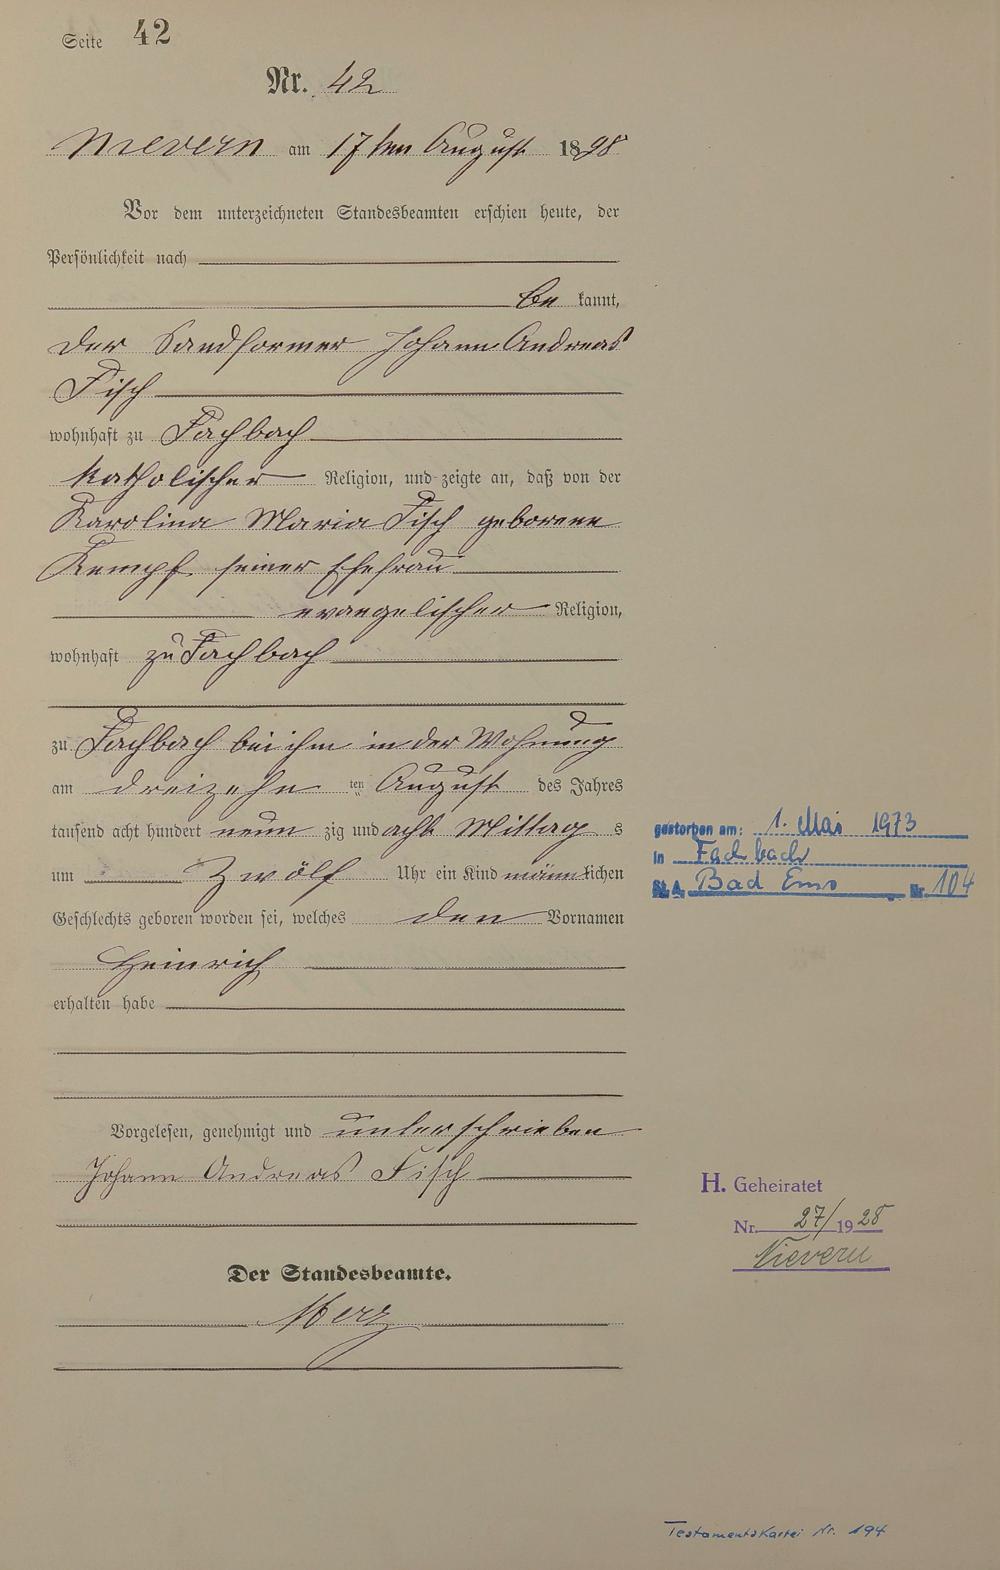 Seite 42
Nr. 42
Nievern am 17ten August 1898
Vor dem unterzeichneten Standesbeamten erschien heute, der
Persönlichkeit nach
be kannt,
der Sandformer Johann Andreas
Fisch
wohnhaft zu Fachbach
katholischer Religion, und zeigte an, daß von der
Karolina Maria Fisch geborene
Kempf seiner Ehefrau
evangelischer Religion,
wohnhaft zu Fachbach
zu Fachbach bei ihm in der Wohnung
am dreizehn ten August des Jahres
tausend acht hundert neun zig und acht Mittag s
um Zwölf Uhr ein Kind männlichen
Geschlechts geboren worden sei, welches den Vornamen
Heinrich
erhalten habe
Vorgelesen, genehmigt und unterschrieben
Johann Andreas Fisch
Der Standesbeamte.
Merz
gestorben am: 1. Mai 1973
in Fachbach
St.A. Bad Ems Nr. 104
H. Geheiratet
Nr. 27/1928
Nievern
Testamentskartei Nr. 194